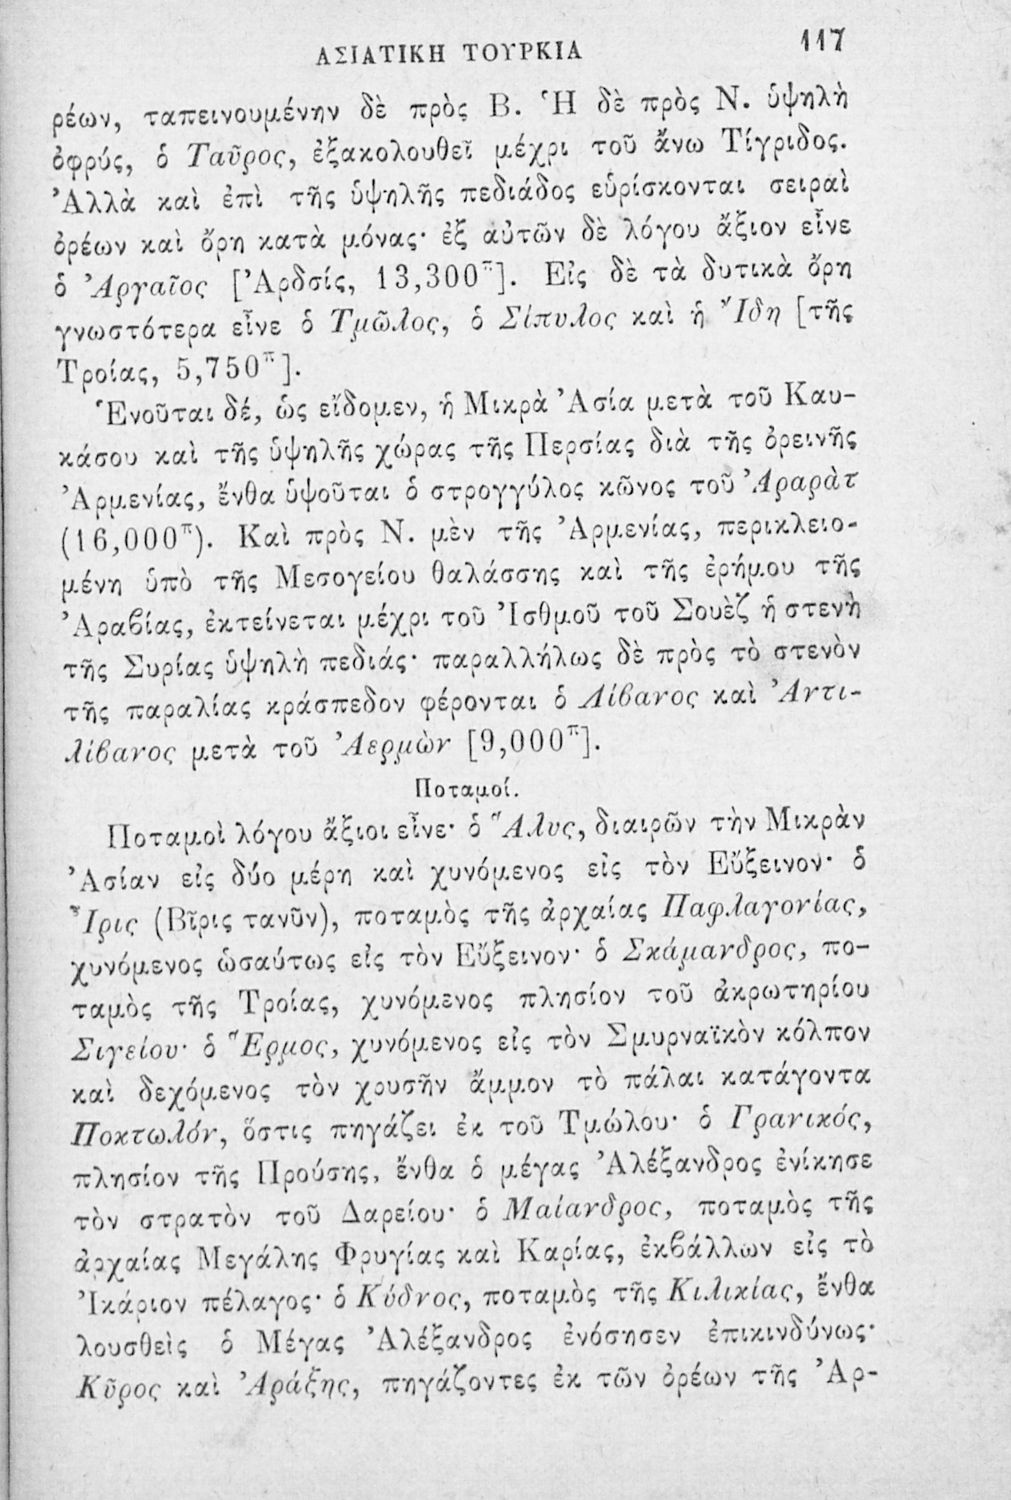 ΑΣΙΑΤΙΚΗ ΤΟΥΡΚΙΑ 117
ρέων, ταπεινουμένην δὲ πρὸς Β. Ἡ δὲ πρὸς Ν. ὑψηλὴ
ὀφρύς, ὁ Ταῦρος, ἐξακολουθεῖ μέχρι τοῦ ἄνω Τίγριδος.
Ἀλλὰ καὶ ἐπὶ τῆς ὑψηλῆς πεδιάδος εὑρίσκονται σειραὶ
ὀρέων καὶ ὄρη κατὰ μόνας· ἐξ αὐτῶν δὲ λόγου ἄξιον εἶνε
ὁ Ἀργαῖος [Ἀρδσίς, 13,300π]. Εἰς δὲ τὰ δυτικὰ ὄρη
γνωστότερα εἶνε ὁ Τμῶλος, ὁ Σίπυλος καὶ ἡ Ἴδη [τῆς
Τροίας, 5,750π].
Ἑνοῦται δέ, ὡς εἴδομεν, ἡ Μικρὰ Ἀσία μετὰ τοῦ Καυ-
κάσου καὶ τῆς ὑψηλῆς χώρας τῆς Περσίας διὰ τῆς ὀρεινῆς
Ἀρμενίας, ἔνθα ὑψοῦται ὁ στρογγύλος κῶνος τοῦ Ἀραρὰτ
(16,000π). Καὶ πρὸς Ν. μὲν τῆς Ἀρμενίας, περικλειο-
μένη ὑπὸ τῆς Μεσογείου θαλάσσης καὶ τῆς ἐρήμου τῆς
Ἀραβίας, ἐκτείνεται μέχρι τοῦ Ἰσθμοῦ τοῦ Σουὲζ ἡ στενὴ
τῆς Συρίας ὑψηλὴ πεδιάς· παραλλήλως δὲ πρὸς τὸ στενὸν
τῆς παραλίας κράσπεδον φέρονται ὁ Λίβανος καὶ Ἀντι-
λίβανος μετὰ τοῦ Ἀερμὼν [9,000π].
Ποταμοί.
Ποταμοὶ λόγου ἄξιοι εἶνε· ὁ Ἅλυς, διαιρῶν τὴν Μικρὰν
Ἀσίαν εἰς δύο μέρη καὶ χυνόμενος εἰς τὸν Εὔξεινον· ὁ
Ἶρις (Βῖρις τανῦν), ποταμὸς τῆς ἀρχαίας Παφλαγονίας,
χυνόμενος ὡσαύτως εἰς τὸν Εὔξεινον· ὁ Σκάμανδρος, πο-
ταμὸς τῆς Τροίας, χυνόμενος πλησίον τοῦ ἀκρωτηρίου
Σιγείου· ὁ Ἕρμος, χυνόμενος εἰς τὸν Σμυρναϊκὸν κόλπον
καὶ δεχόμενος τὸν χρυσῆν ἄμμον τὸ πάλαι κατάγοντα
Ποκτωλόν, ὅστις πηγάζει ἐκ τοῦ Τμώλου· ὁ Γρανικός,
πλησίον τῆς Προύσης, ἔνθα ὁ μέγας Ἀλέξανδρος ἐνίκησε
τὸν στρατὸν τοῦ Δαρείου· ὁ Μαίανδρος, ποταμὸς τῆς
ἀρχαίας Μεγάλης Φρυγίας καὶ Καρίας, ἐκβάλλων εἰς τὸ
Ἰκάριον πέλαγος· ὁ Κύδνος, ποταμὸς τῆς Κιλικίας, ἔνθα
λουσθεὶς ὁ Μέγας Ἀλέξανδρος ἐνόσησεν ἐπικινδύνως·
Κῦρος καὶ Ἀράξης, πηγάζοντες ἐκ τῶν ὀρέων τῆς Ἀρ-